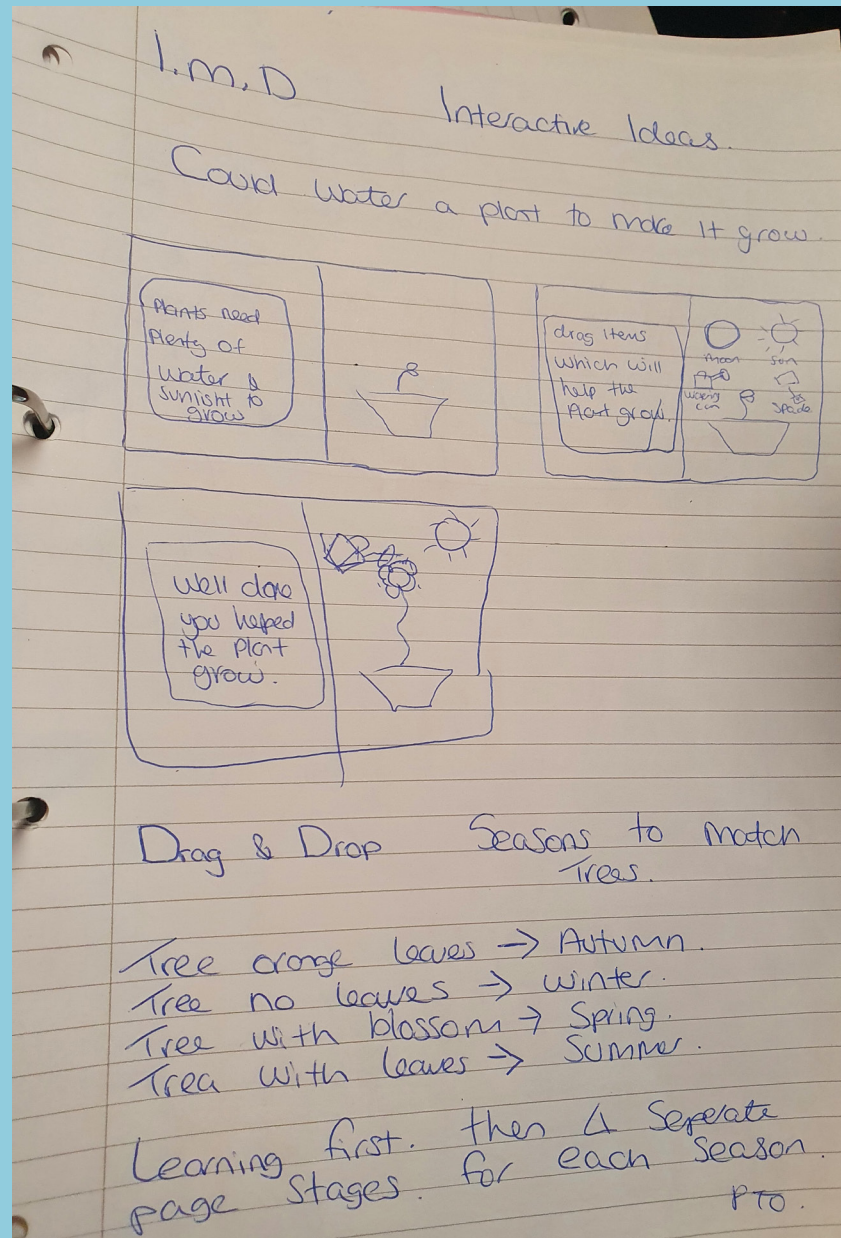 I.M.D
Interactive Ideas.
Could water a plant to make it grow.
Plants need
Plenty of
Water &
sunlight to
grow
drag items
which will
help the
Plant grow.
moon
sun
watering
can
spade
Well done
you helped
the Plant
grow.
Drag & Drop Seasons to match
Trees.
Tree orange leaves → Autumn.
Tree no leaves → Winter.
Tree with blossom → Spring.
Trea with leaves → Summer.
Learning first. then 4 Seperate
page stages. for each season.
PTO.